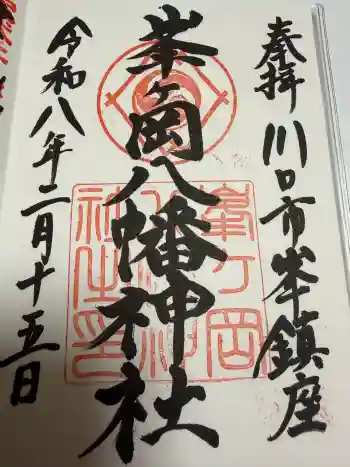 奉拝 川口市峯鎮座
峯ヶ岡八幡神社
令和八年二月十五日
峯ヶ岡
八幡神
社之印